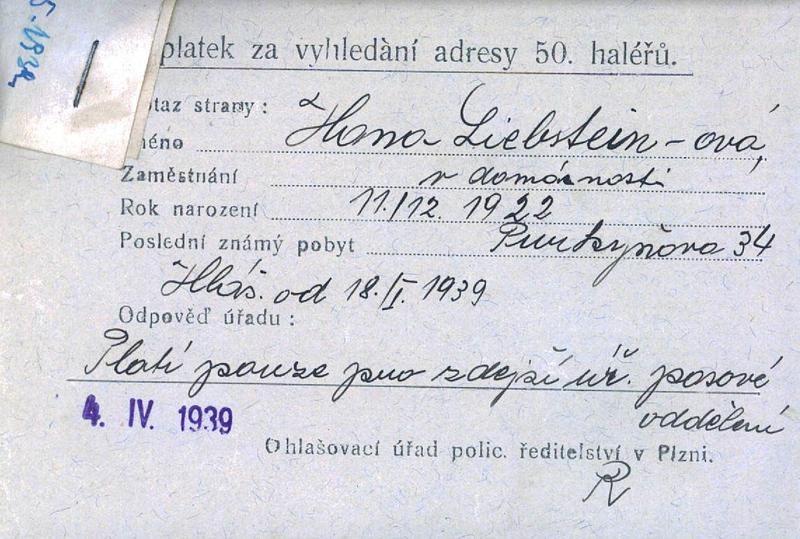 5. 1939
platek za vyhledání adresy 50. haléřů.
otaz strany:
méno Hana Liebstein-ová,
Zaměstnání v domácnosti
Rok narození 11./12. 1922
Poslední známý pobyt Purkyňova 34
Hláš. od 18./I. 1939
Odpověď úřadu:
Platí pouze pro zdejší úř. pasové
oddělení
4. IV. 1939
Ohlašovací úřad polic. ředitelství v Plzni.
R